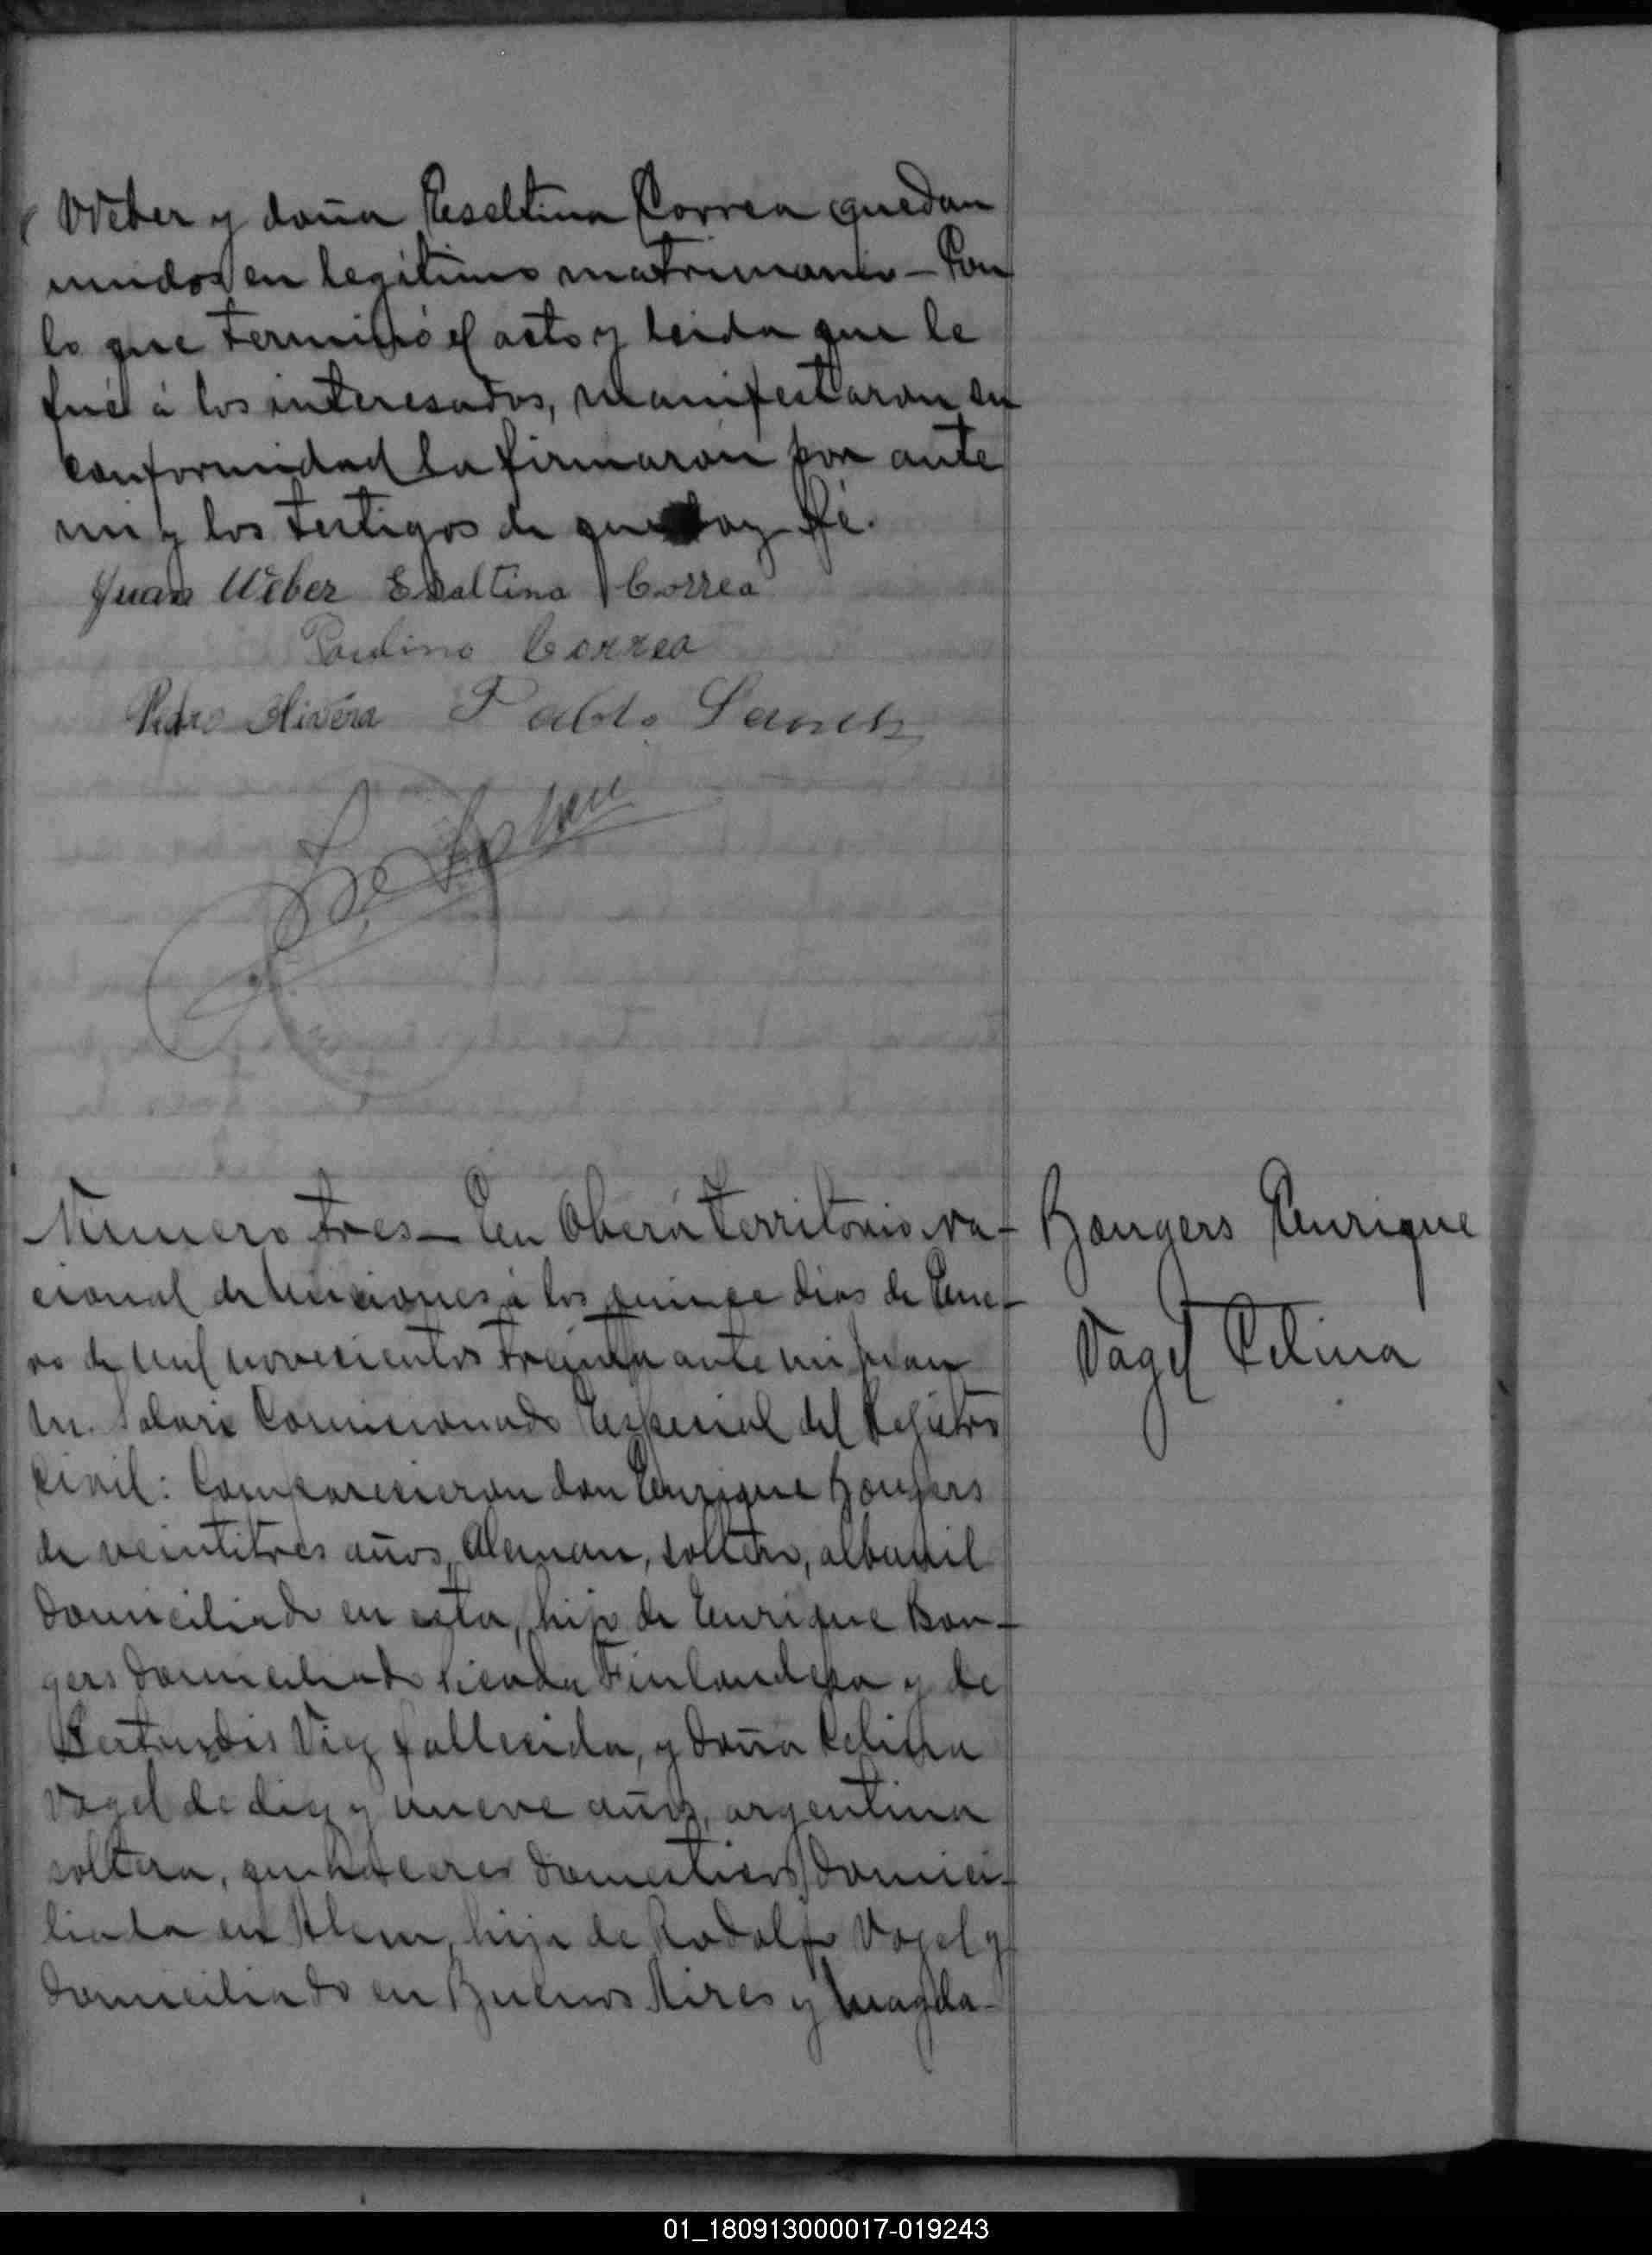 Weber y doña Eseltina Correa quedan
unidos en legítimo matrimonio – Con
lo que terminó el acto y leida que le
fué á los interesados, manifestaron su
conformidad la firmaron por ante
mi y los testigos de que doy fé.
Juan Weber Esaltina Correa
Paulino Correa
Pedro Olivera Pablo
Número tres – En Oberá Territorio Na-
cional de Misiones á los quince dias de Ene-
ro de mil novecientos treinta ante mi Juan
M. Solari Comisionado Especial del Registro
Civil: Comparecieron don Enrique Bongers
de veintitres años, Aleman, soltero, albanil
domiciliado en esta, hijo de Enrique Bon-
gers domiciliado Picada Finlandesa y de
fallecida, y doña Celina
Vogel de diez y nueve años, argentina
soltera, quehaceres domesticos, domici-
liada en Alem, hija de Rodolfo Vogel y
domiciliado en Buenos Aires y Magda-
Bongers Enrique
Vogel Celina
01_180913000017-019243